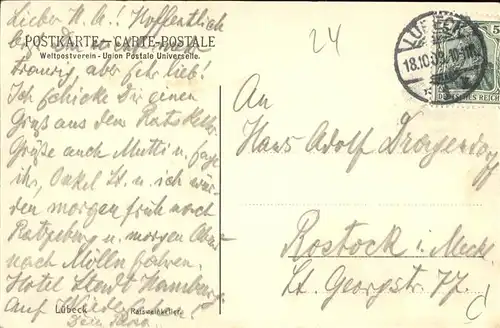 Lieber H. A.! Hoffentlich
POSTKARTE – CARTE POSTALE
Weltpostverein - Union Postale Universelle.
traurig, aber sehr lieb!
Ich schicke Dir einen
Gruß aus dem Ratskeller
Grüße auch Mutti u. sage
ihr, Onkel St. u. ich wür-
den morgen früh nach
Ratzeburg u. morgen Abend
nach Mölln fahren.
Hotel Stadt Hamburg.
Auf Wiedersehen
Dein
Lübeck
Ratsweinkeller
24
LÜBECK
18.10.09.
DEUTSCHES REICH
5
An
Hans Adolf Dragendorff
Rostock i. Meckl.
St. Georgstr. 77